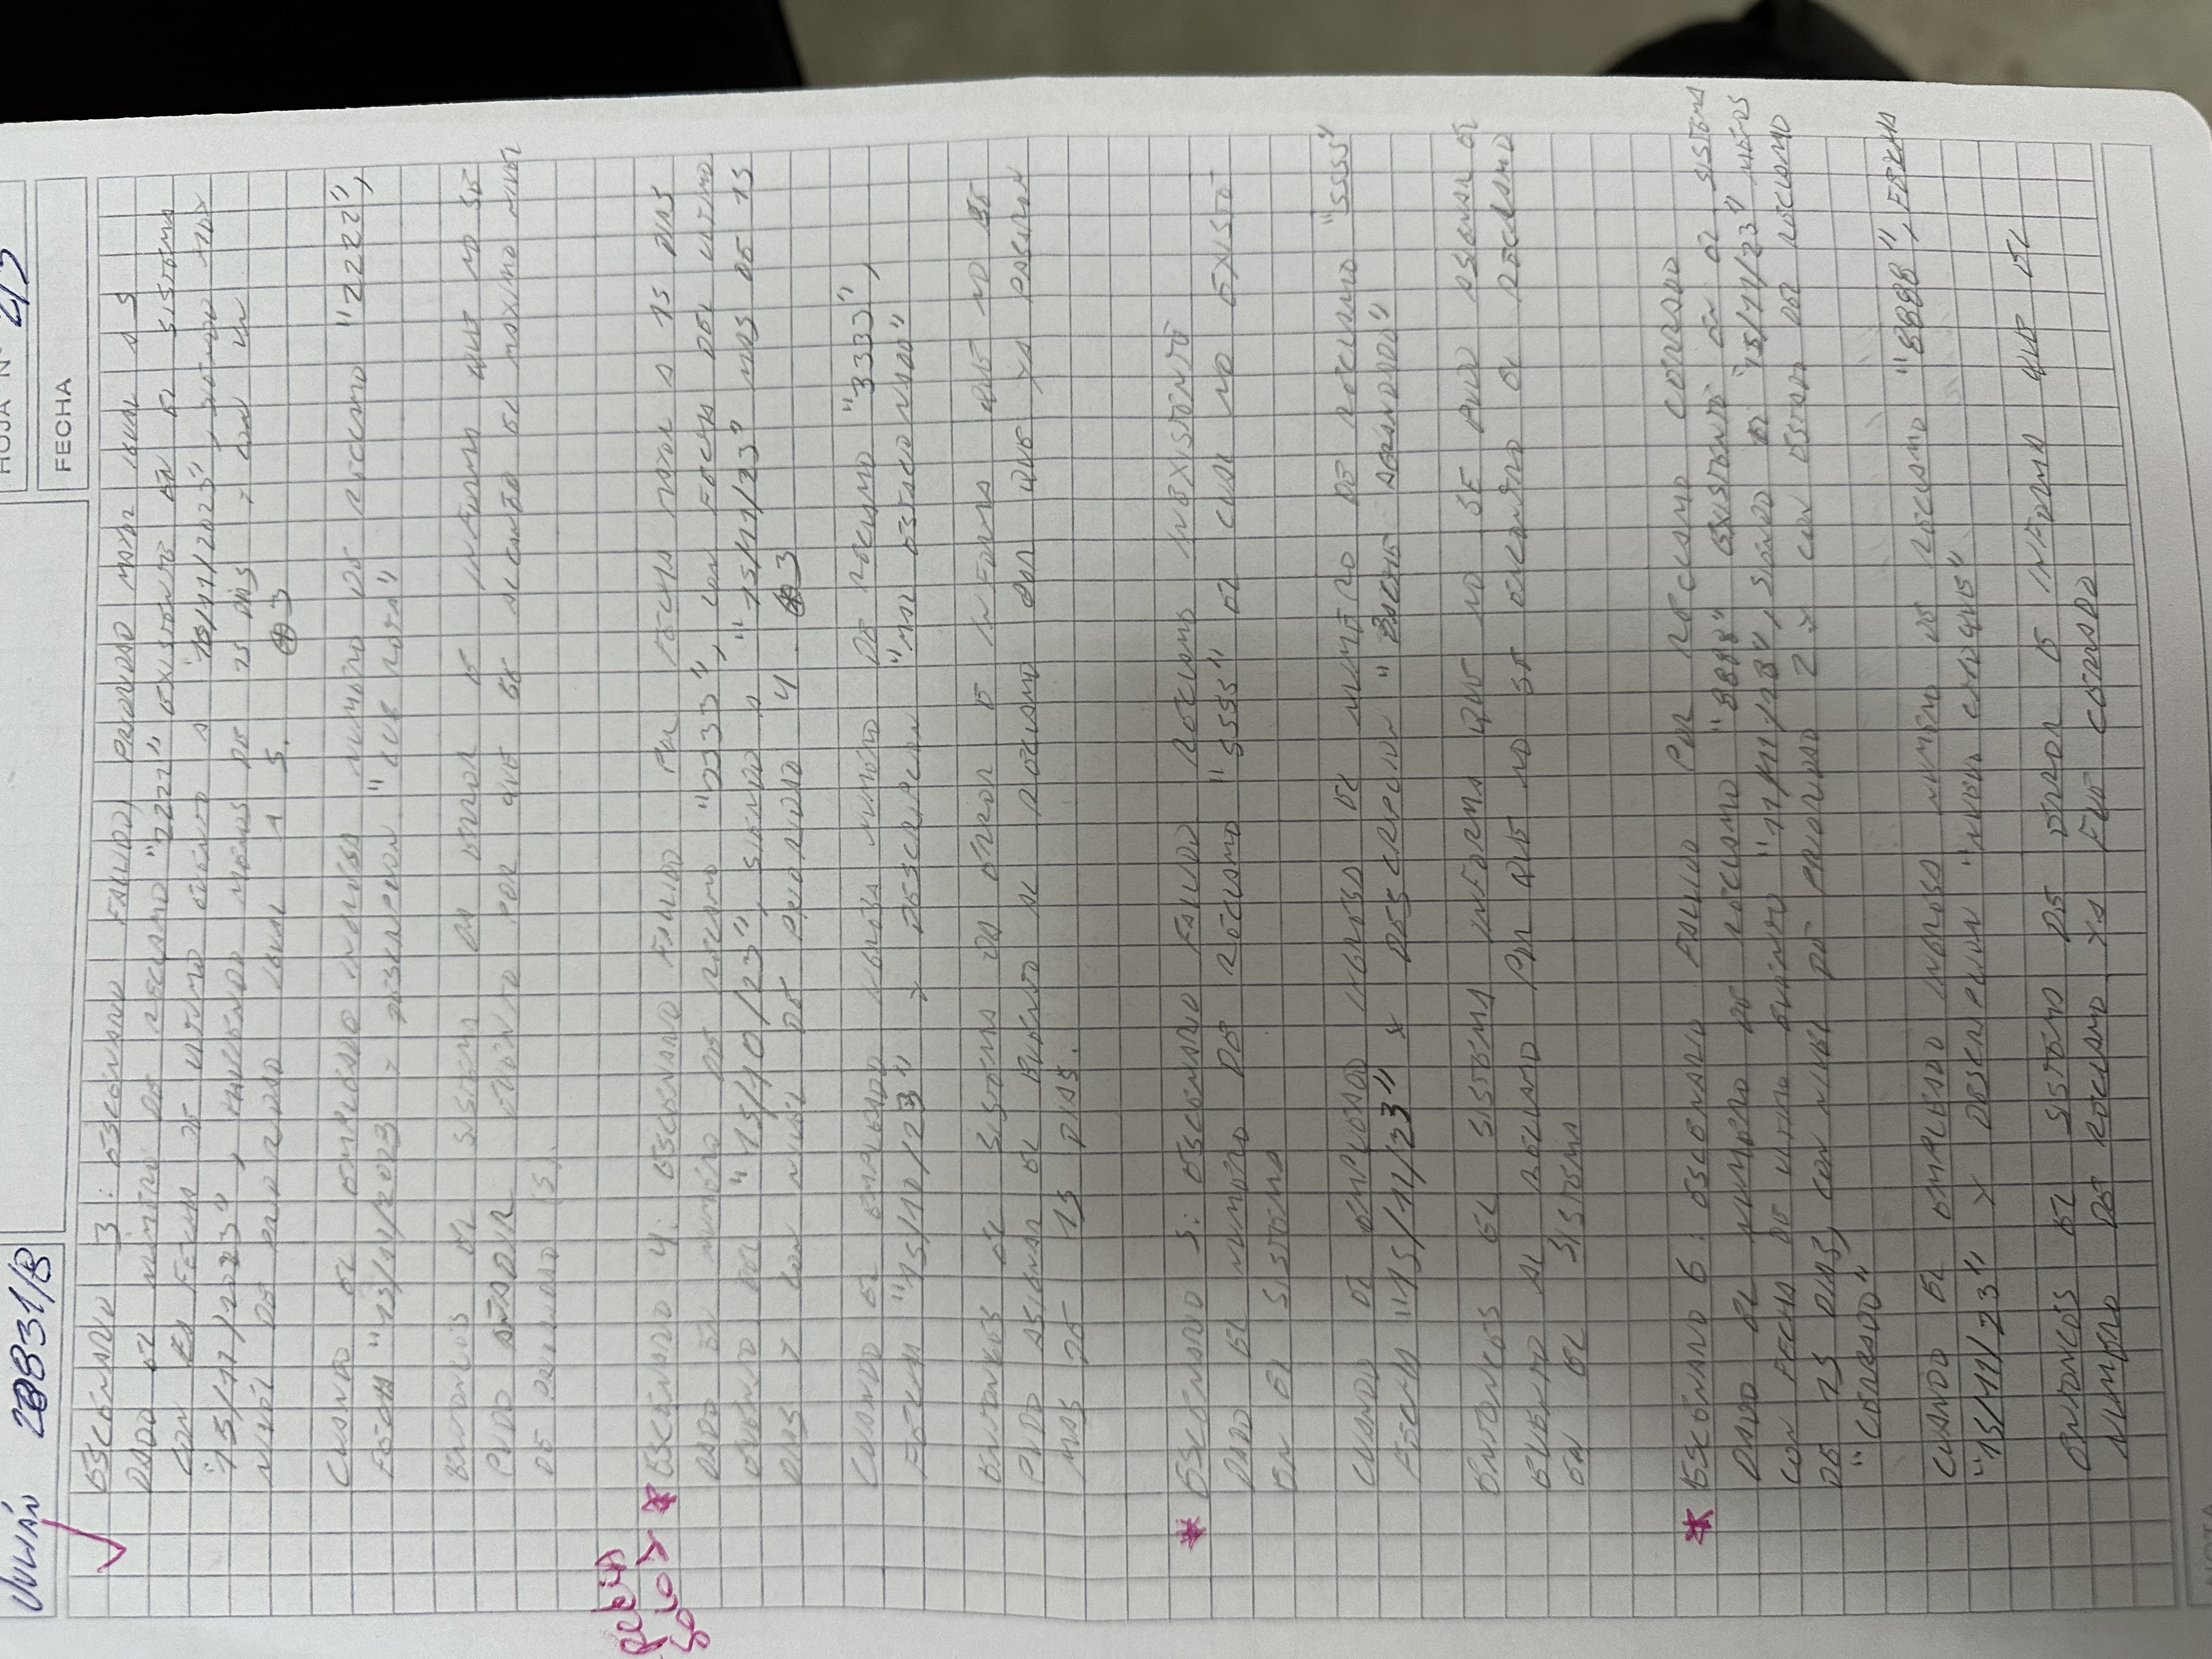 JULIÁN 20831/8
HOJA Nº 2/3
FECHA
ESCENARIO 3: ESCENARIO FALLIDO, PRIORIDAD MAYOR IGUAL A 5
DADO EL NUMERO DE RECLAMO "2222" EXISTENTE EN EL SISTEMA
CON FECHA DE ULTIMO EVENTO A "15/11/2023", SIENDO HOY
"15/11/2023", HACIENDO MENOS DE 15 DIAS Y CON UN
NIVEL DE PRIORIDAD IGUAL A 5. * 3
CUANDO EL EMPLEADO INGRESA NUMERO DE RECLAMO "2222",
FECHA "15/11/2023 Y DESCRIPCION "LUZ ROTA"
ENTONCES EL SISTEMA DA ERROR E INFORMA QUE NO SE
PUDO AÑADIR EVENTO POR QUE SE ALCANZO EL MAXIMO NIVEL
DE PRIORIDAD (5).
PEDIA
SOLO 3
* ESCENARIO 4: ESCENARIO FALLIDO POR FECHA MAYOR A 15 DIAS
DADO EN NUMERO DE RECLAMO "3333", CON FECHA DEL ULTIMO
EVENTO DEL "15/10/23", SIENDO A "15/11/23" MAS DE 15
DIAS Y CON NIVEL DE PRIORIDAD 4. * 3
CUANDO EL EMPLEADO INGRESA NUMERO DE RECLAMO "3333",
FECHA "15/10/23" Y DESCRIPCION "MAL ESTACIONADO"
ENTONCES EL SISTEMA DA ERROR E INFORMA QUE NO SE
PUDO ASIGNAR EL EVENTO AL RECLAMO POR QUE YA PASARON
MAS DE 15 DIAS.
* ESCENARIO 5: ESCENARIO FALLIDO RECLAMO INEXISTENTE
DADO EL NUMERO DE RECLAMO "5555" EL CUAL NO EXISTE
EN EL SISTEMA
CUANDO EL EMPLEADO INGRESA EL NUMERO DE RECLAMO "5555"
FECHA "15/11/23" Y DESCRIPCION "BACHE AGRANDADO"
ENTONCES EL SISTEMA INFORMA QUE NO SE PUDO ASIGNAR EL
EVENTO AL RECLAMO POR QUE NO SE ENCONTRO EL RECLAMO
EN EL SISTEMA
* ESCENARIO 6: ESCENARIO FALLIDO POR RECLAMO CERRADO
DADO EL NUMERO DE RECLAMO "8888" EXISTENTE EN EL SISTEMA
CON FECHA DE ULTIMO EVENTO "11/11/23", SIENDO EL "15/11/23" MENOS
DE 15 DIAS, CON NIVEL DE PRIORIDAD 2 Y CON ESTADO DEL RECLAMO
"CERRADO"
CUANDO EL EMPLEADO INGRESA NUMERO DE RECLAMO "8888", FECHA
"15/11/23" Y DESCRIPCION "NUEVO CHOQUE"
ENTONCES EL SISTEMA DE ERROR E INFORMA QUE EL
NUMERO DE RECLAMO YA FUE CERRADO
NOTA